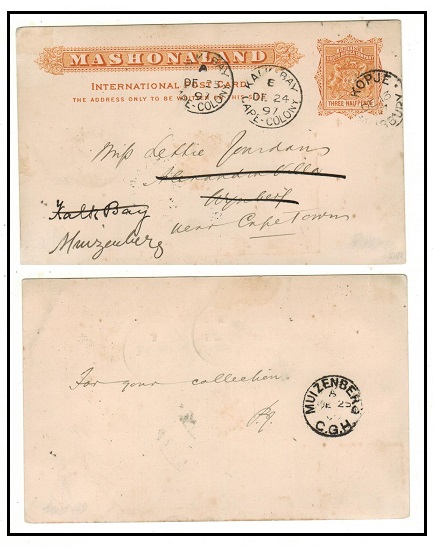 MASHONALAND
INTERNATIONAL POST CARD
THE ADDRESS ONLY TO BE WRITTEN ON THIS SIDE
THREE HALF PENCE
A
DE 25
97
CAPE-COLONY
KALK-BAY
E
DE 24
97
CAPE-COLONY
KOPJE
Miss Lettie Jourdans
Alexandra Villa
Wynberg
near Cape Town
Kalk Bay
Muizenberg
For your collection
MUIZENBERG
A
DE 25
C.G.H.